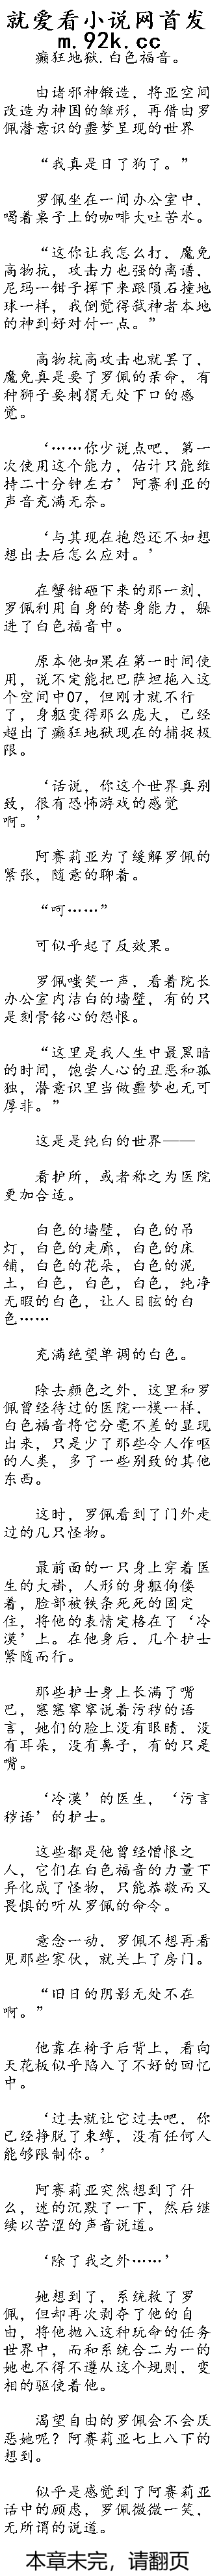 就爱看小说网首发
m.92k.cc
癫狂地狱.白色福音。
由诸邪神锻造，将亚空间
改造为神国的雏形，再借由罗
佩潜意识的噩梦呈现的世界
“我真是日了狗了。”
罗佩坐在一间办公室中，
喝着桌子上的咖啡大吐苦水。
“这你让我怎么打，魔免
高物抗，攻击力也强的离谱，
尼玛一钳子挥下来跟陨石撞地
球一样，我倒觉得弑神者本地
的神到好对付一点。”
高物抗高攻击也就罢了，
魔免真是要了罗佩的亲命，有
种狮子要刺猬无处下口的感
觉。
‘……你少说点吧，第一
次使用这个能力，估计只能维
持二十分钟左右’阿赛利亚的
声音充满无奈。
‘与其现在抱怨还不如想
想出去后怎么应对。’
在蟹钳砸下来的那一刻，
罗佩利用自身的替身能力，躲
进了白色福音中。
原本他如果在第一时间使
用，说不定能把巴萨坦拖入这
个空间中07，但刚才就不行
了，身躯变得那么庞大，已经
超出了癫狂地狱现在的捕捉极
限。
‘话说，你这个世界真别
致，很有恐怖游戏的感觉
啊。’
阿赛莉亚为了缓解罗佩的
紧张，随意的聊着。
“呵……”
可似乎起了反效果。
罗佩嗤笑一声，看着院长
办公室内洁白的墙壁，有的只
是刻骨铭心的怨恨。
“这里是我人生中最黑暗
的时间，饱尝人心的丑恶和孤
独，潜意识里当做噩梦也无可
厚非。”
这是是纯白的世界——
看护所，或者称之为医院
更加合适。
白色的墙壁，白色的吊
灯，白色的走廊，白色的床
铺，白色的花朵，白色的泥
土，白色，白色，白色，纯净
无暇的白色，让人目眩的白
色……
充满绝望单调的白色。
除去颜色之外，这里和罗
佩曾经待过的医院一模一样，
白色福音将它分毫不差的显现
出来，只是少了那些令人作呕
的人类，多了一些别致的其他
东西。
这时，罗佩看到了门外走
过的几只怪物。
最前面的一只身上穿着医
生的大褂，人形的身躯佝偻
着，脸部被铁条死死的固定
住，将他的表情定格在了‘冷
漠’上。在他身后，几个护士
紧随而行。
那些护士身上长满了嘴
巴，窸窸窣窣说着污秽的语
言，她们的脸上没有眼睛，没
有耳朵，没有鼻子，有的只是
嘴。
‘冷漠’的医生，‘污言
秽语’的护士。
这些都是他曾经憎恨之
人，它们在白色福音的力量下
异化成了怪物，只能恭敬而又
畏惧的听从罗佩的命令。
意念一动，罗佩不想再看
见那些家伙，就关上了房门。
“旧日的阴影无处不在
啊。”
他靠在椅子后背上，看向
天花板似乎陷入了不好的回忆
中。
‘过去就让它过去吧，你
已经挣脱了束缚，没有任何人
能够限制你。’
阿赛莉亚突然想到了什
么，迷的沉默了一下，然后继
续以苦涩的声音说道。
‘除了我之外……’
她想到了，系统救了罗
佩，但却再次剥夺了他的自
由，将他抛入这种玩命的任务
世界中，而和系统合二为一的
她也不得不遵从这个规则，变
相的驱使着他。
渴望自由的罗佩会不会厌
恶她呢？阿赛莉亚七上八下的
想到。
似乎是感觉到了阿赛莉亚
话中的顾虑，罗佩微微一笑，
无所谓的说道。
本章未完，请翻页